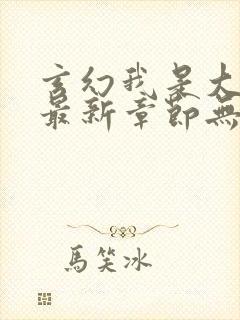 玄幻我是大
最新章節無
馬笑冰